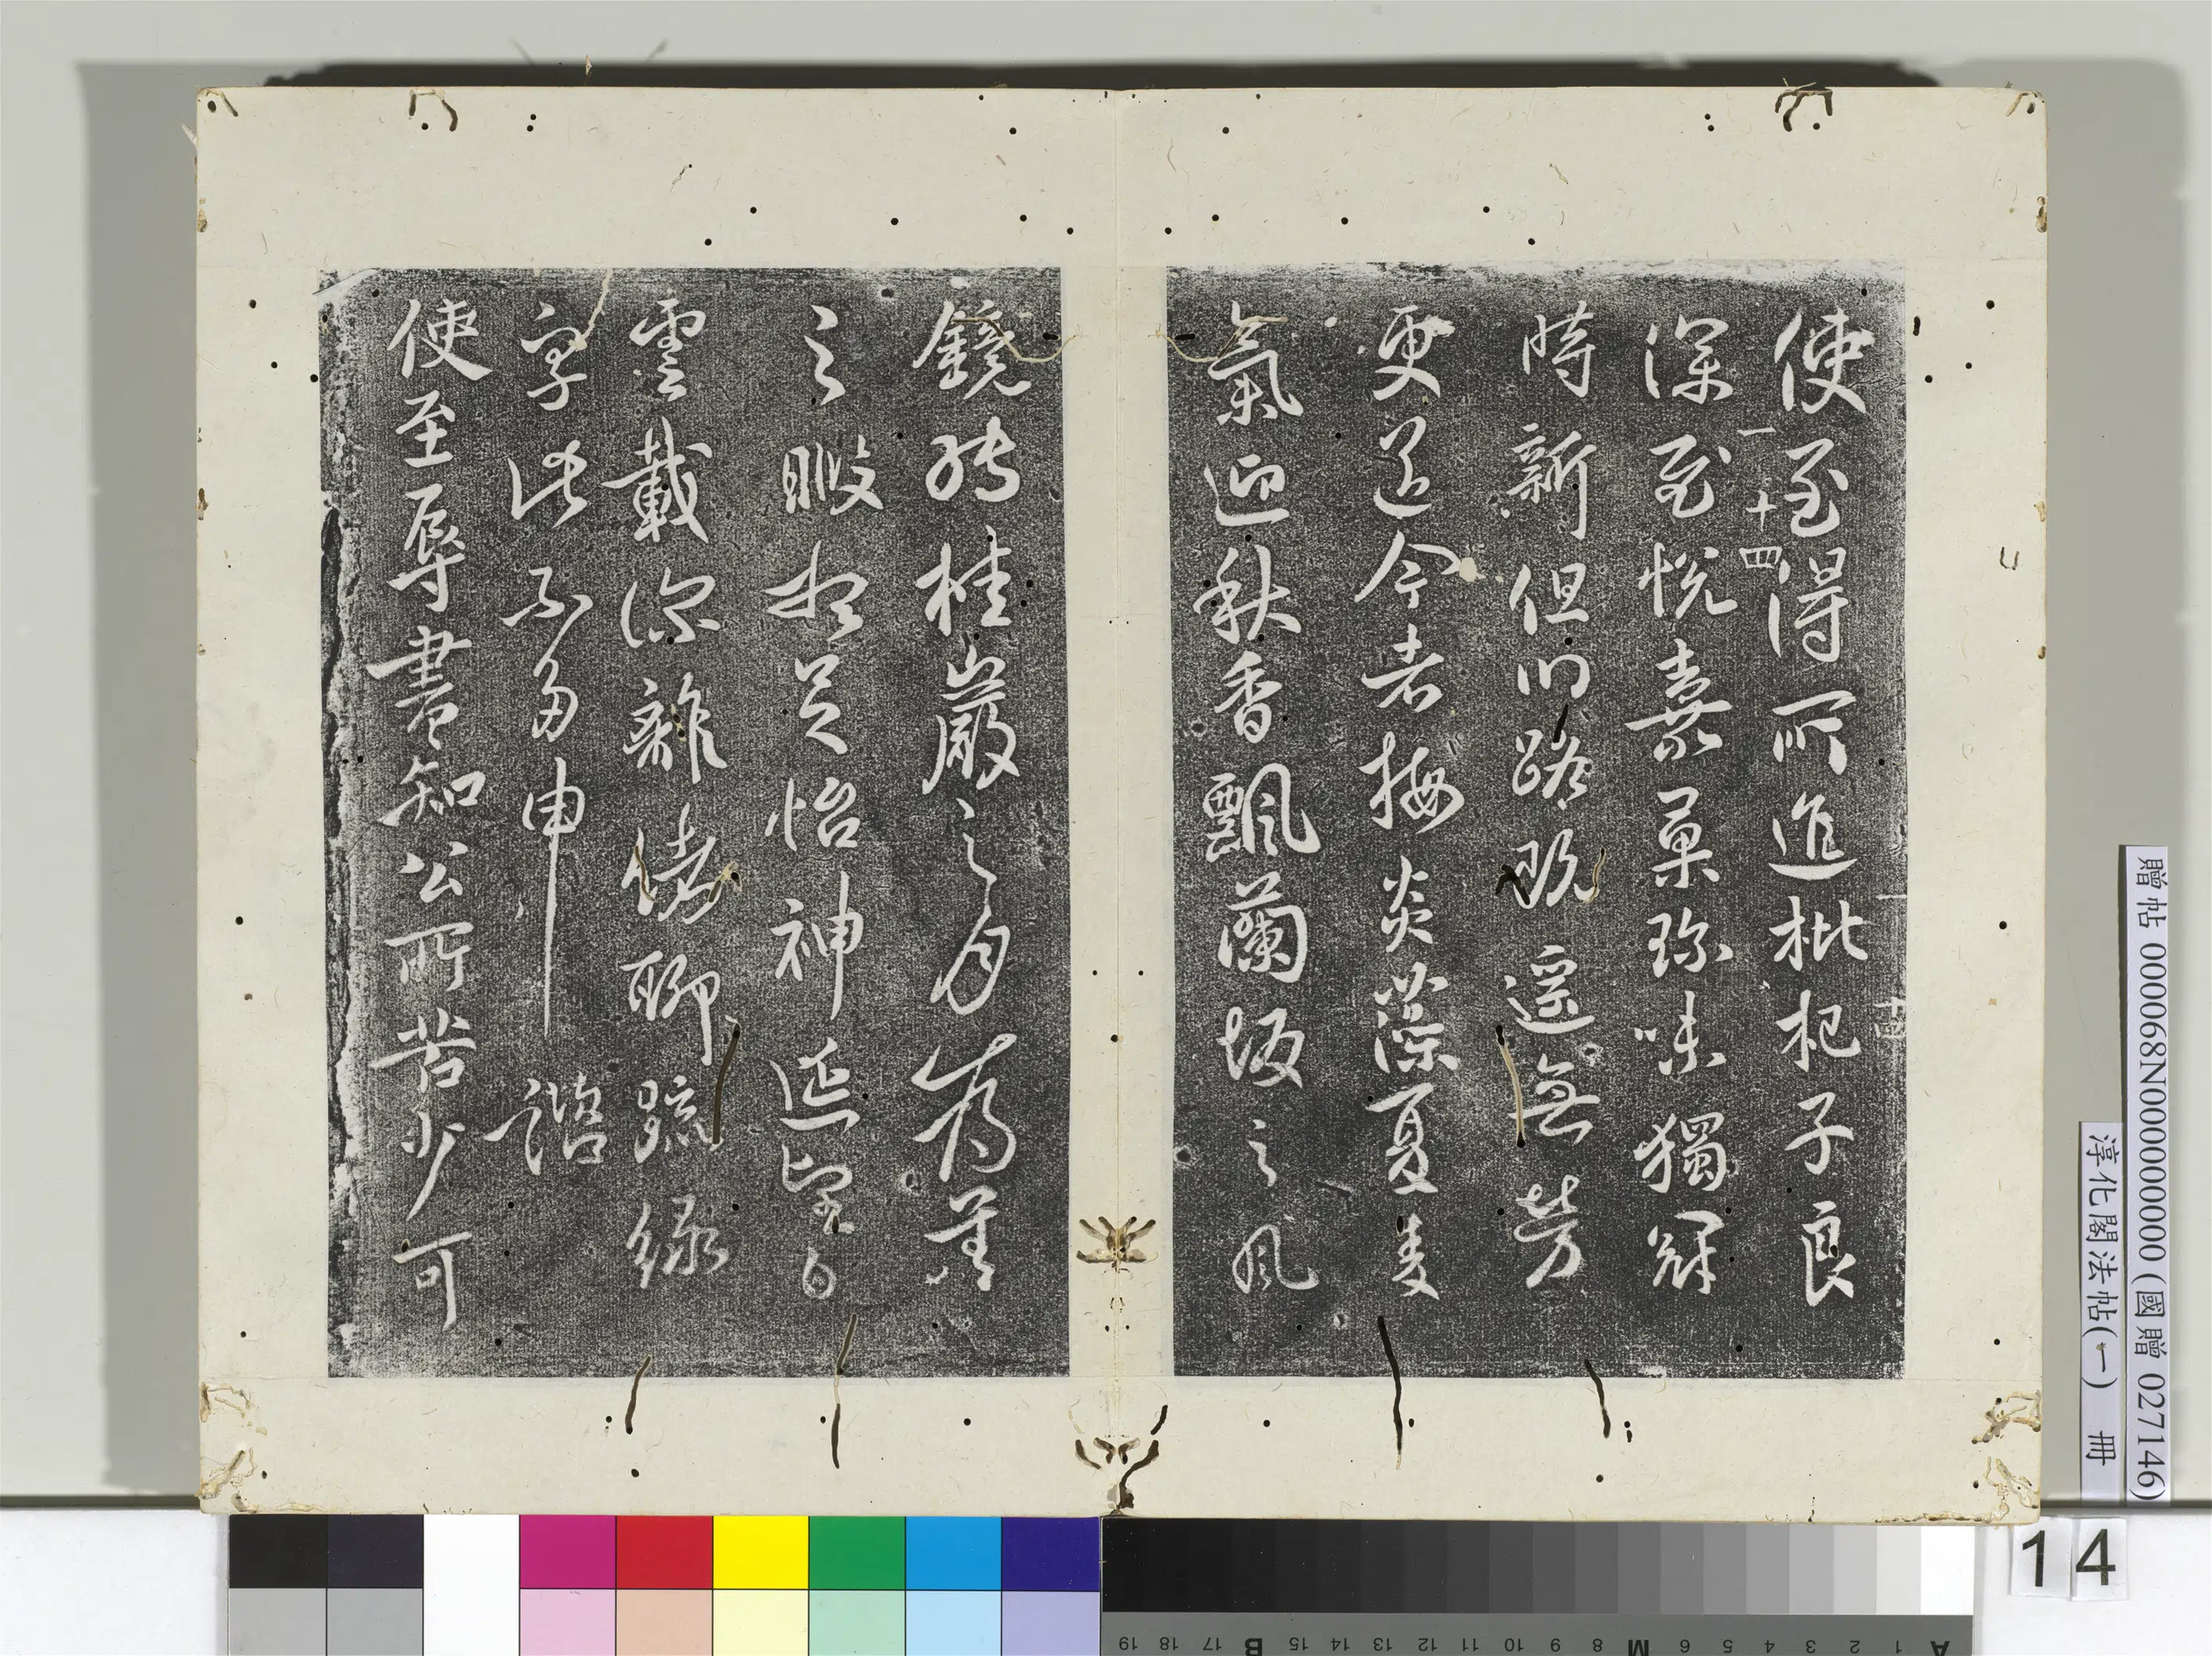 使至得所進枇杷子良
一十四
深至悅嘉菓珎味獨冠
時新但川路既遥無勞
更送今者梅炎藻夏麦
氣迎秋香飄蘭坂之風
鏡轉桂巖之月為善
之暇想足怡神延望白
雲載深離緒聊疏綠
字此不多申 諮
使至辱書知公所苦少可
贈帖 000068N000000000 (國贈 027146)
淳化閣法帖(一) 冊
14
A 1 2 3 4 5 6 M 8 9 10 11 12 13 14 15 B 17 18 19